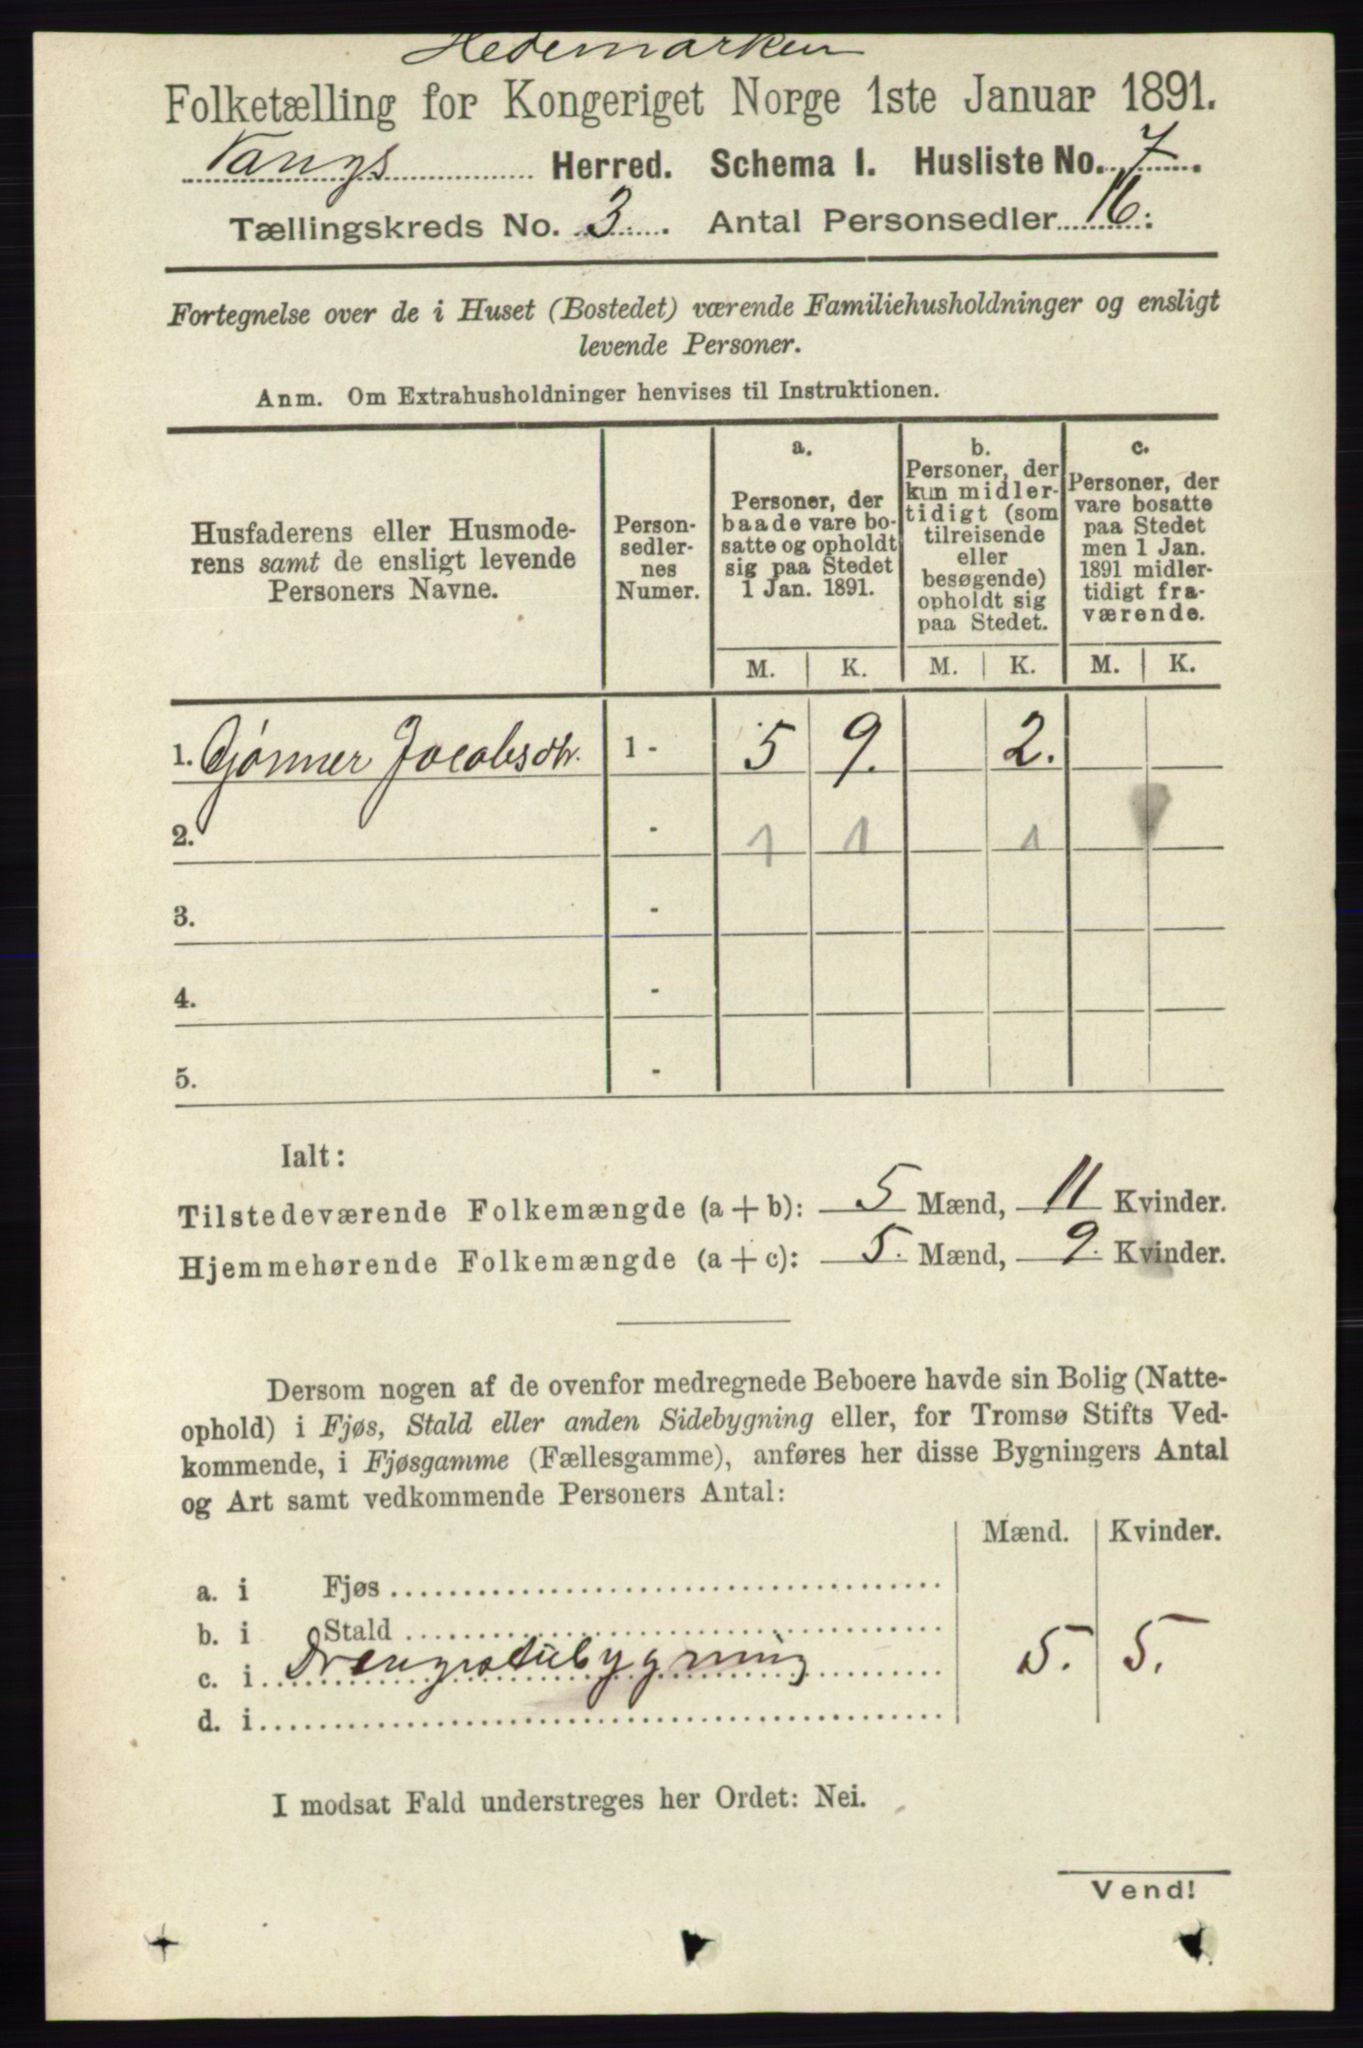 Hedemarken
Folketælling for Kongeriget Norge 1ste Januar 1891.
Vangs Herred. Schema 1. Husliste No. 7.
Tællingskreds No. 3. Antal Personsedler 16.
Fortegnelse over de i Huset (Bostedet) værende Familiehusholdninger og ensligt
levende Personer.
Anm. Om Extrahusholdninger henvises til Instruktionen.
Husfaderens eller Husmode-
rens samt de ensligt levende
Personers Navne.
Person-
sedler-
nes
Numer.
a.
Personer, der
baade vare bo-
satte og opholdt
sig paa Stedet
1 Jan. 1891.
b.
Personer, der
kun midler-
tidigt (som
tilreisende
eller
besøgende)
opholdt sig
paa Stedet.
c.
Personer, der
vare bosatte
paa Stedet
men 1 Jan.
1891 midler-
tidigt fra-
værende.
M. K. M. K. M. K.
1. Gjønner Jacobsdtr. 1 - 5 9. 2.
2. - 1 1 1
3. -
4. -
5. -
Ialt:
Tilstedeværende Folkemængde (a + b): 5 Mænd, 11 Kvinder.
Hjemmehørende Folkemængde (a + c): 5. Mænd, 9. Kvinder.
Dersom nogen af de ovenfor medregnede Beboere havde sin Bolig (Natte-
ophold) i Fjøs, Stald eller anden Sidebygning eller, for Tromsø Stifts Ved-
kommende, i Fjøsgamme (Fællesgamme), anføres her disse Bygningers Antal
og Art samt vedkommende Personers Antal:
Mænd. Kvinder.
a. i Fjøs
b. i Stald
c. i Drengstubygning 5. 5.
d. i
I modsat Fald understreges her Ordet: Nei.
Vend!